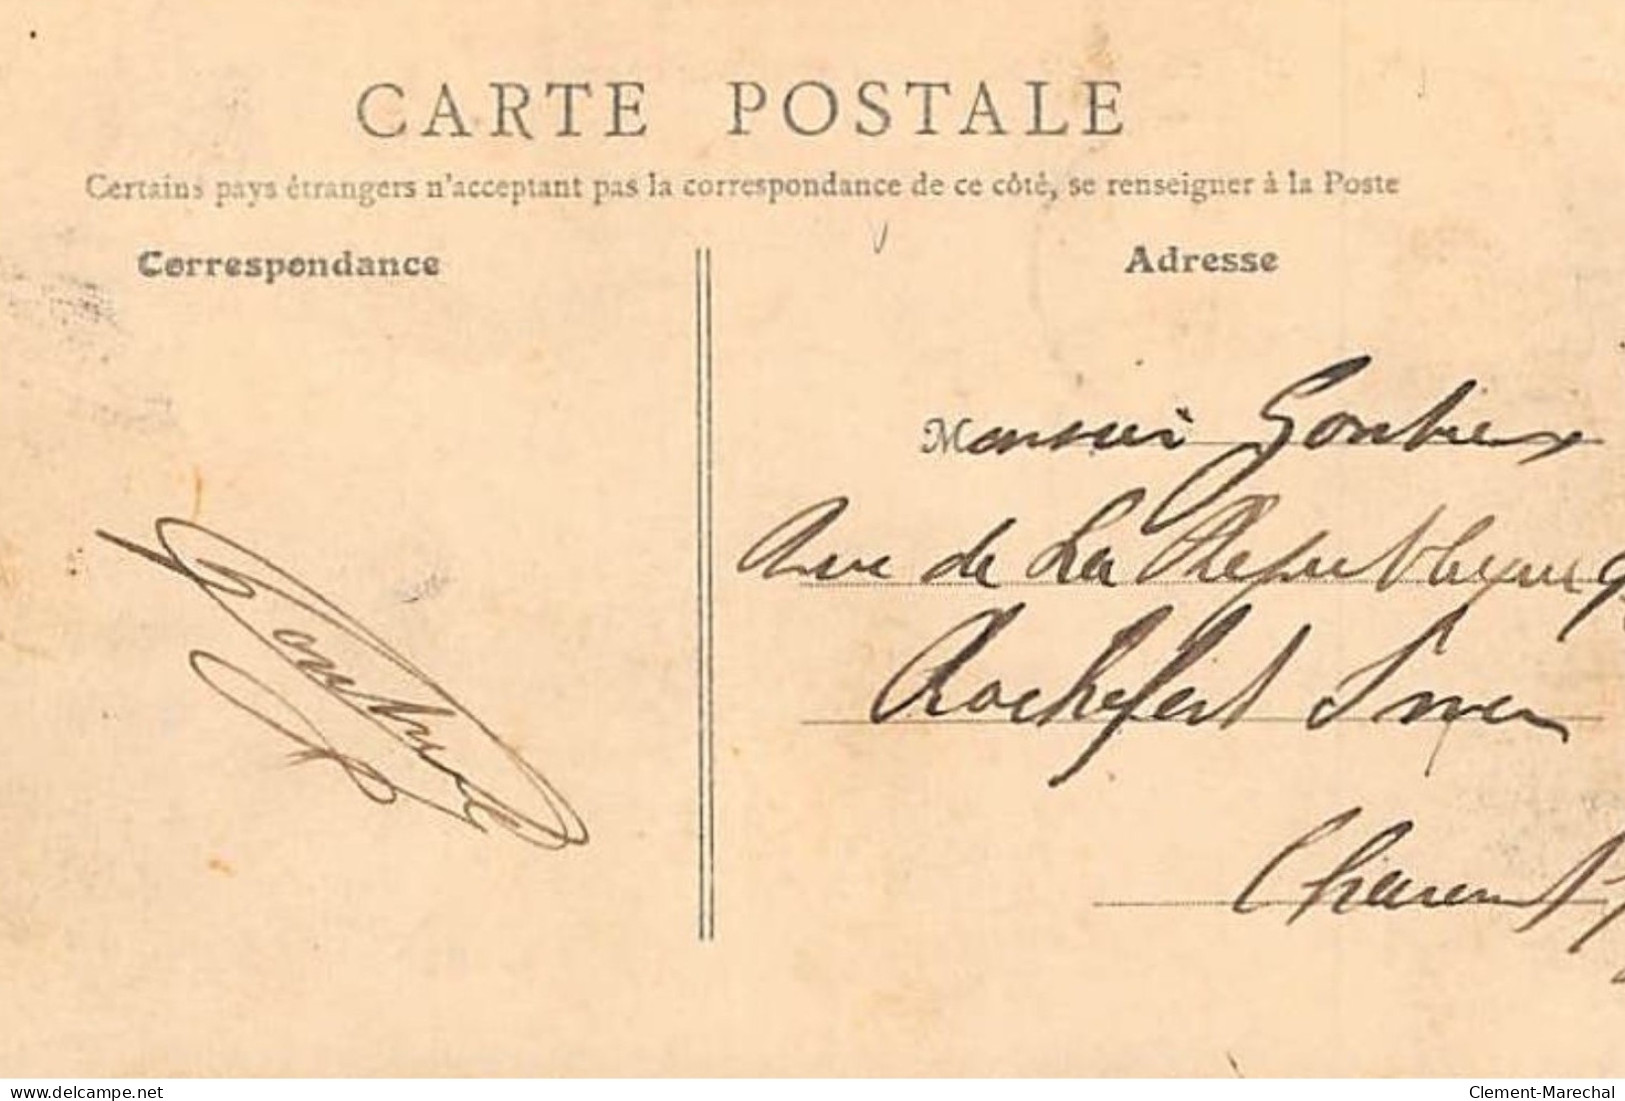 CARTE POSTALE
Certains pays étrangers n'acceptant pas la correspondance de ce côté, se renseigner à la Poste
Correspondance
Adresse
Monsieur
Rue de La Republique
Rochefort S mer
Charent
delcampe.net
Clement-Marechal